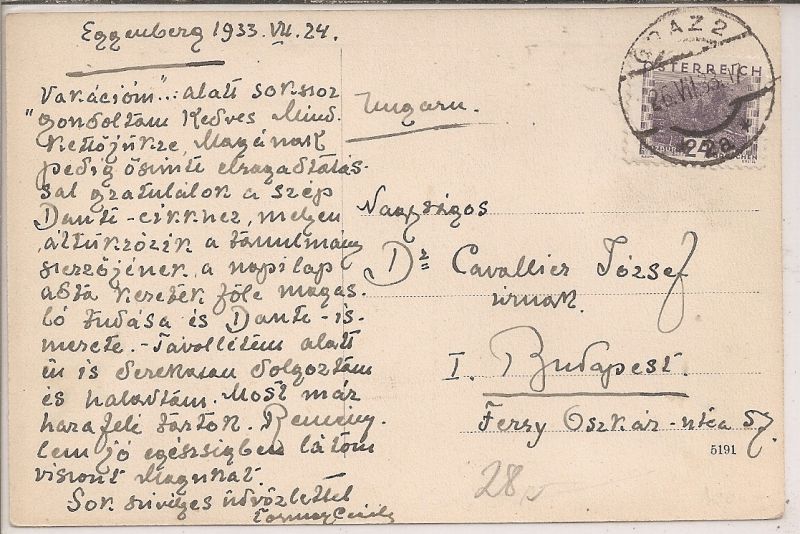 Eggenberg 1933. VII. 24.
"Vakációm"... alatt sokszor
gondoltam Kedves Mind-
kettőjükre, Magának
pedig őszinte elragadtatás-
sal gratulálok a szép
Dante-cikkhez, melyen
áltükrözik a tanulmány
szerzőjének, a napilap
adta keretek fölé magas-
ló tudása és Dante-is-
merete. - Távollétem alatt
én is derekasan dolgoztam
és haladtam. Most már
hazafelé tartok. Remény-
lem jó egészségben látom
viszont Magukat.
Sok szívélyes üdvözlettel
Tormay Cecile
Ungarn.
GRAZ 2
26.VII.33
ÖSTERREICH
24 24
GROSCHEN
Nagyságos
Dr. Cavallier József
úrnak.
I. Budapest.
Ferry Oszkár-utca 57.
5191
28